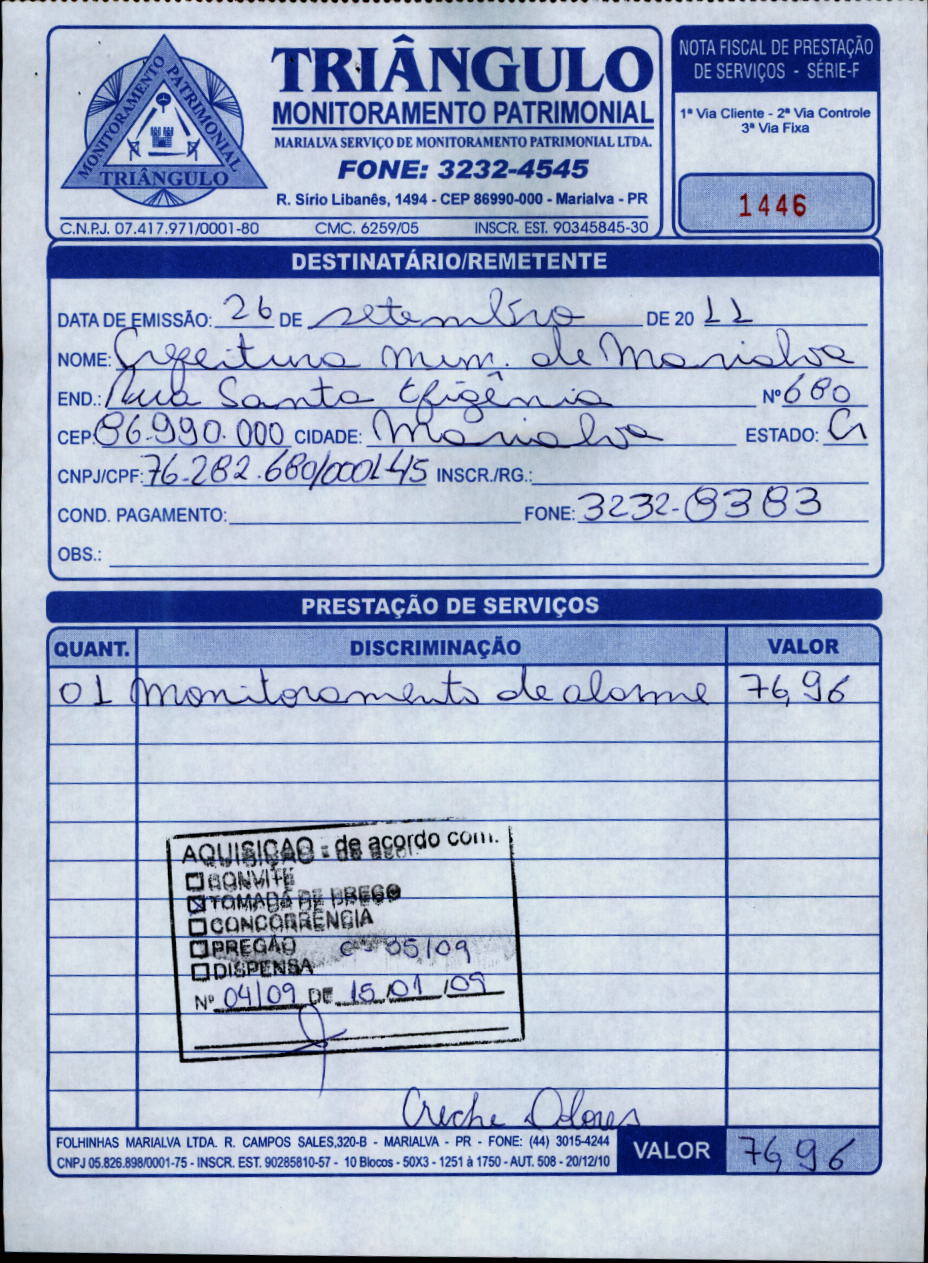 TRIÂNGULO
MONITORAMENTO PATRIMONIAL
MARIALVA SERVIÇO DE MONITORAMENTO PATRIMONIAL LTDA.
FONE: 3232-4545
R. Sírio Libanês, 1494 - CEP 86990-000 - Marialva - PR
C.N.P.J. 07.417.971/0001-80 CMC. 6259/05 INSCR. EST. 90345845-30
MONITORAMENTO PATRIMONIAL
TRIÂNGULO
NOTA FISCAL DE PRESTAÇÃO
DE SERVIÇOS - SÉRIE-F
1ª Via Cliente - 2ª Via Controle
3ª Via Fixa
1446
DESTINATÁRIO/REMETENTE
DATA DE EMISSÃO: 26 DE setembro DE 20 11
NOME: Prefeitura Mun. de Marialva
END.: Rua Santa Efigênia Nº 680
CEP: 86.990.000 CIDADE: Marialva ESTADO: Pr
CNPJ/CPF: 76.282.680/0001-45 INSCR./RG.:
COND. PAGAMENTO: FONE: 3232-8383
OBS.:
PRESTAÇÃO DE SERVIÇOS
QUANT. DISCRIMINAÇÃO VALOR
01 Monitoramento de alarme 76,96
AQUISIÇÃO - de acordo com.
CONVITE
TOMADA DE PREÇO
CONCORRÊNCIA
PREGÃO C 05/09
DISPENSA
Nº 04/09 DE 15/01/09
Creche Dolores
FOLHINHAS MARIALVA LTDA. R. CAMPOS SALES,320-B - MARIALVA - PR - FONE: (44) 3015-4244
CNPJ 05.826.898/0001-75 - INSCR. EST. 90285810-57 - 10 Blocos - 50X3 - 1251 à 1750 - AUT. 508 - 20/12/10
VALOR 76,96